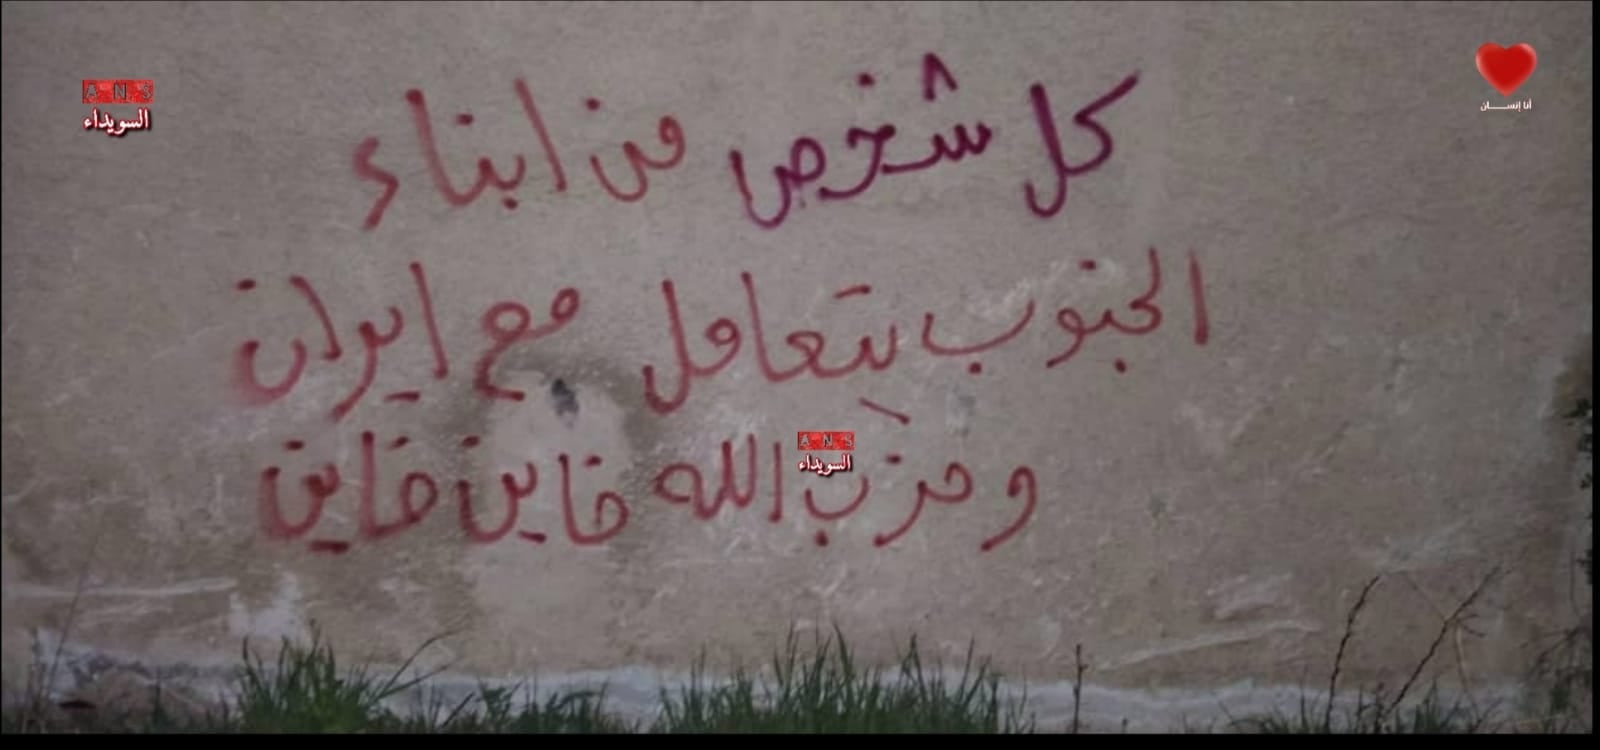 A N S
السويداء
أنا إنسان
كل شخص من ابناء
الجنوب يتعامل مع ايران
A N S
السويداء
وحزب الله خاين خاين